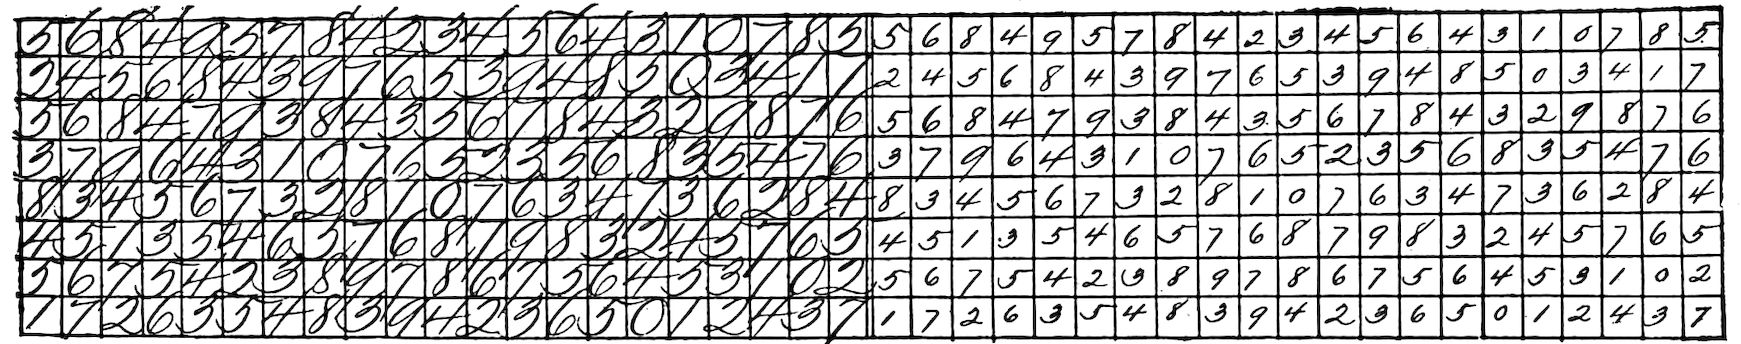 5 6 8 4 9 5 7 8 4 2 3 4 5 6 4 3 1 0 7 8 5 5 6 8 4 9 5 7 8 4 2 3 4 5 6 4 3 1 0 7 8 5
2 4 5 6 8 4 3 9 7 6 5 3 9 4 8 5 0 3 4 1 7 2 4 5 6 8 4 3 9 7 6 5 3 9 4 8 5 0 3 4 1 7
5 6 8 4 7 9 3 8 4 3 5 6 7 8 4 3 2 9 8 7 6 5 6 8 4 7 9 3 8 4 3 5 6 7 8 4 3 2 9 8 7 6
3 7 9 6 4 3 1 0 7 6 5 2 3 5 6 8 3 5 4 7 6 3 7 9 6 4 3 1 0 7 6 5 2 3 5 6 8 3 5 4 7 6
8 3 4 5 6 7 3 2 8 1 0 7 6 3 4 7 3 6 2 8 4 8 3 4 5 6 7 3 2 8 1 0 7 6 3 4 7 3 6 2 8 4
4 5 1 3 5 4 6 5 7 6 8 7 9 8 3 2 4 5 7 6 5 4 5 1 3 5 4 6 5 7 6 8 7 9 8 3 2 4 5 7 6 5
5 6 7 5 4 2 3 8 9 7 8 6 7 5 6 4 5 3 1 0 2 5 6 7 5 4 2 3 8 9 7 8 6 7 5 6 4 5 3 1 0 2
1 7 2 6 3 5 4 8 3 9 4 2 3 6 5 0 1 2 4 3 7 1 7 2 6 3 5 4 8 3 9 4 2 3 6 5 0 1 2 4 3 7